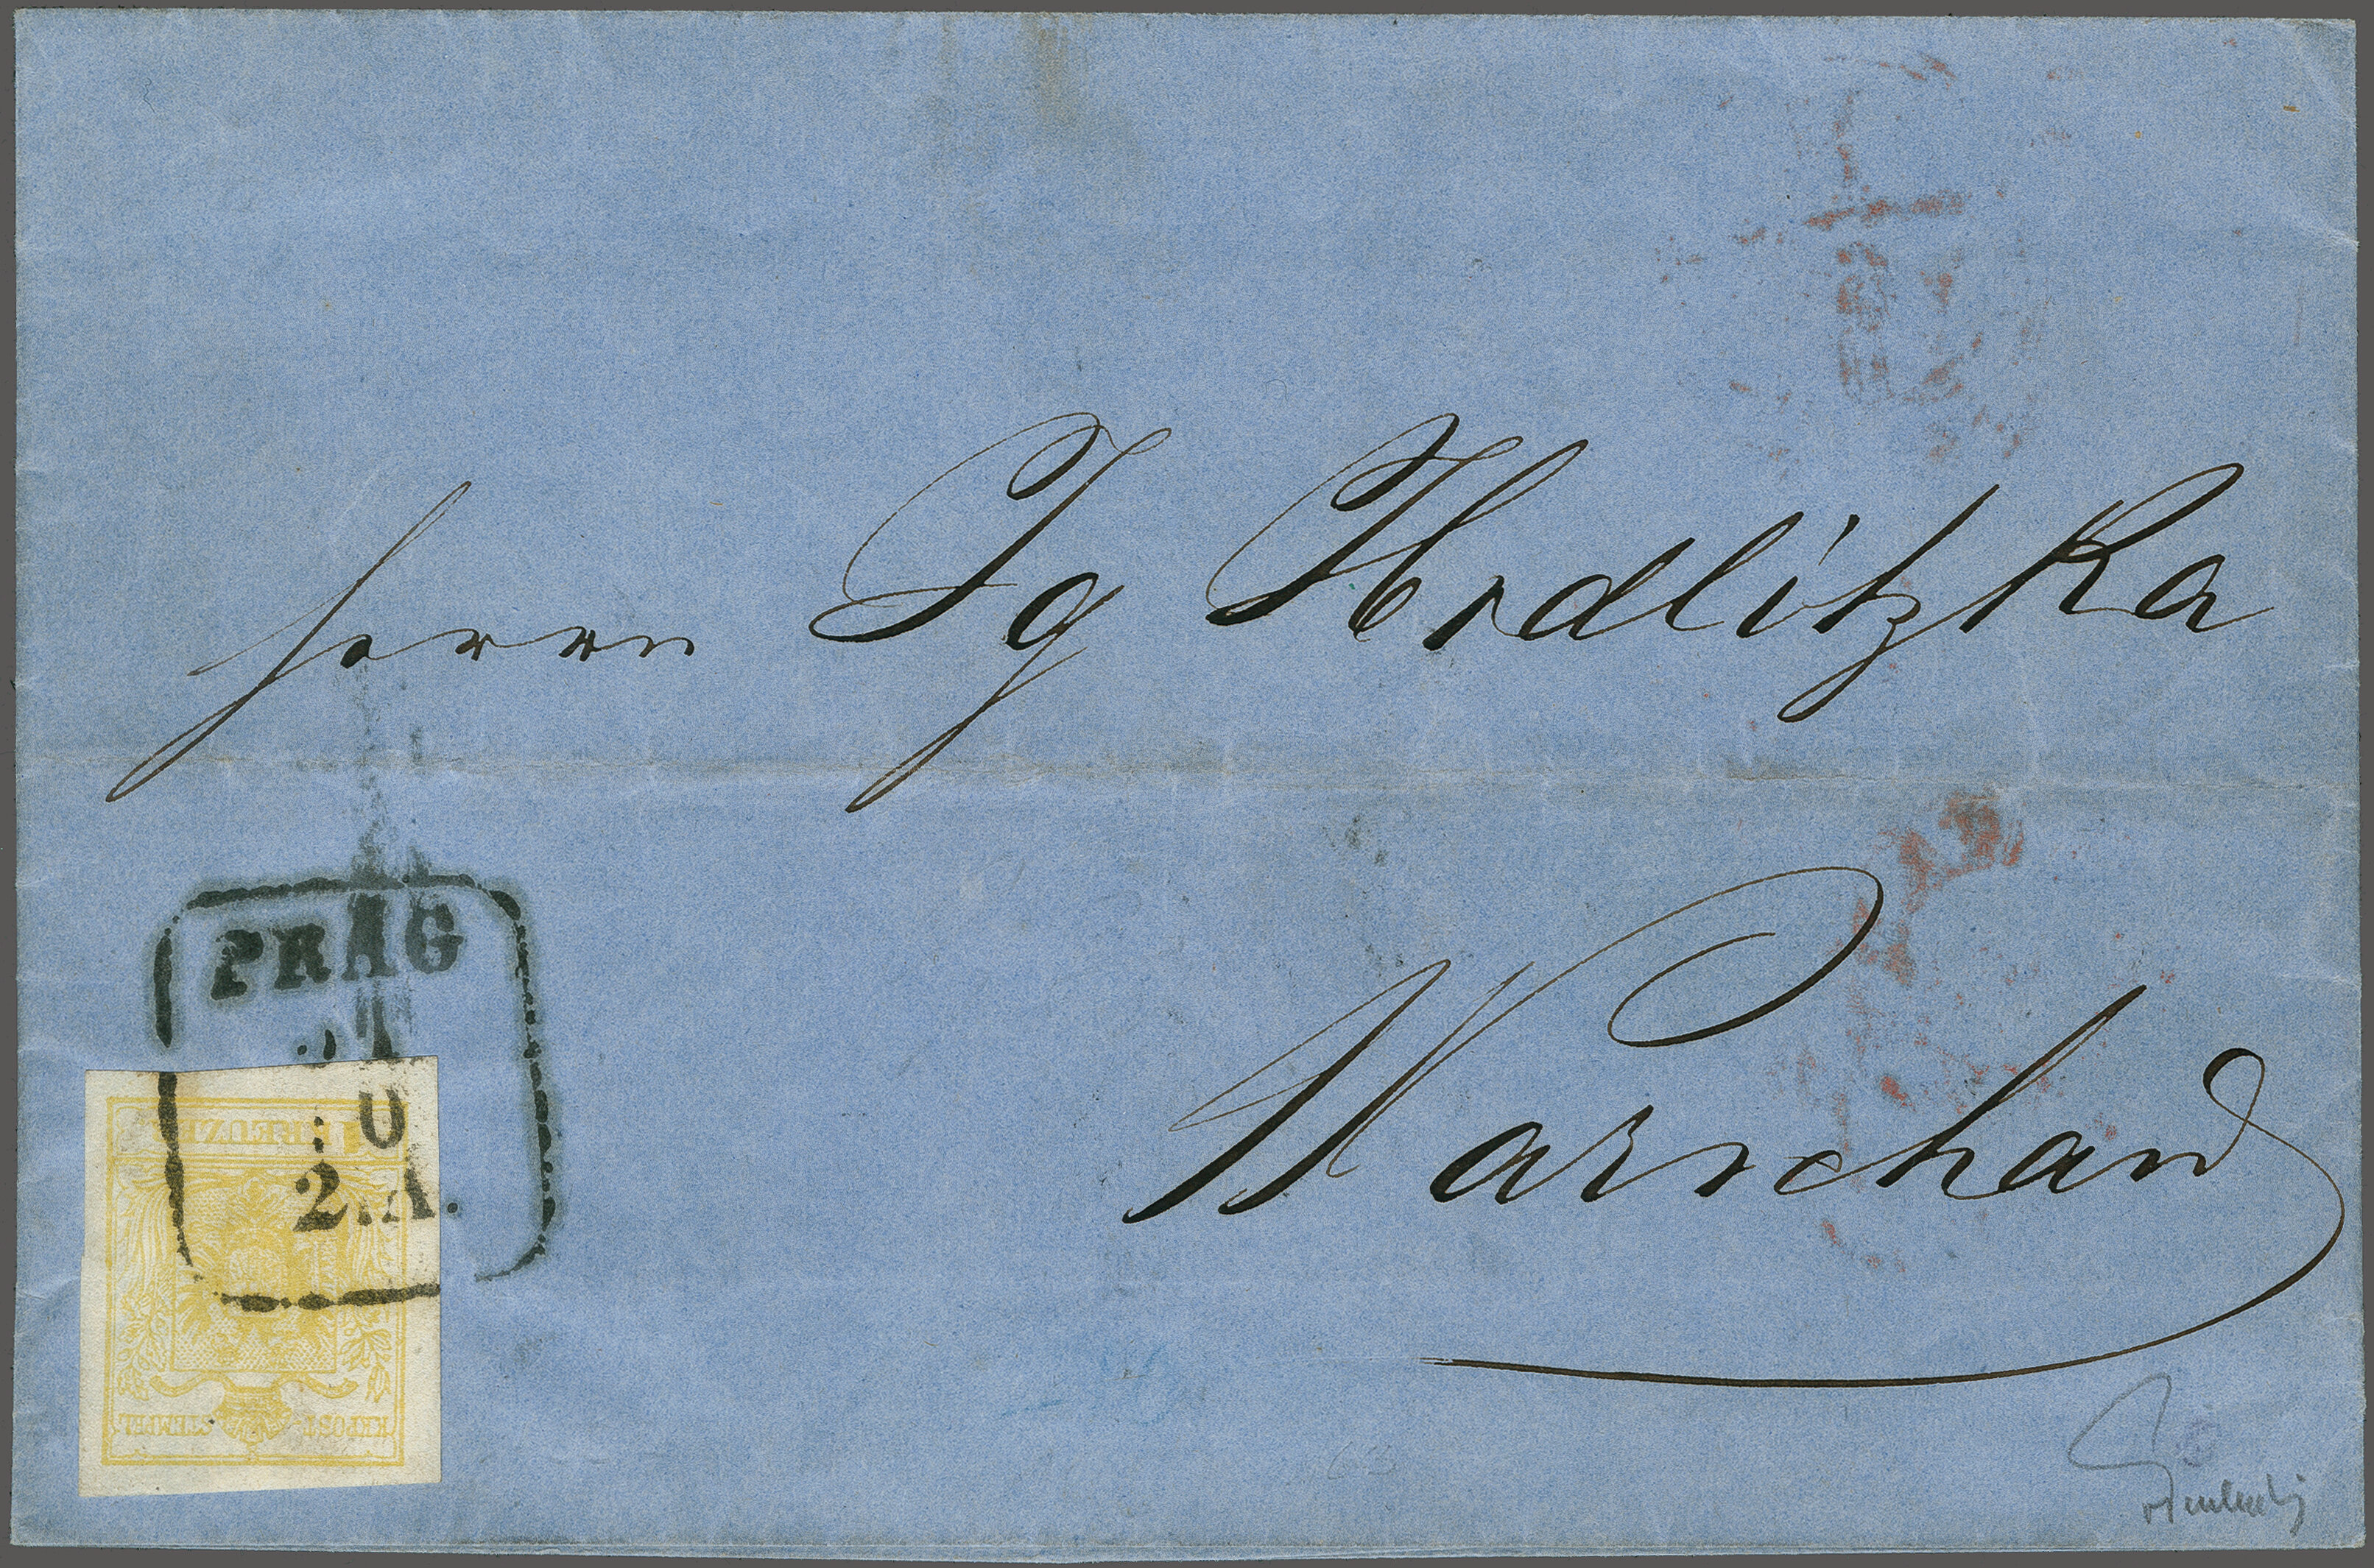 Herrn Ig Hrdlitzka
Warschau
PRAG
2.A.
1 KREUZER
KKPOST-STEMPEL